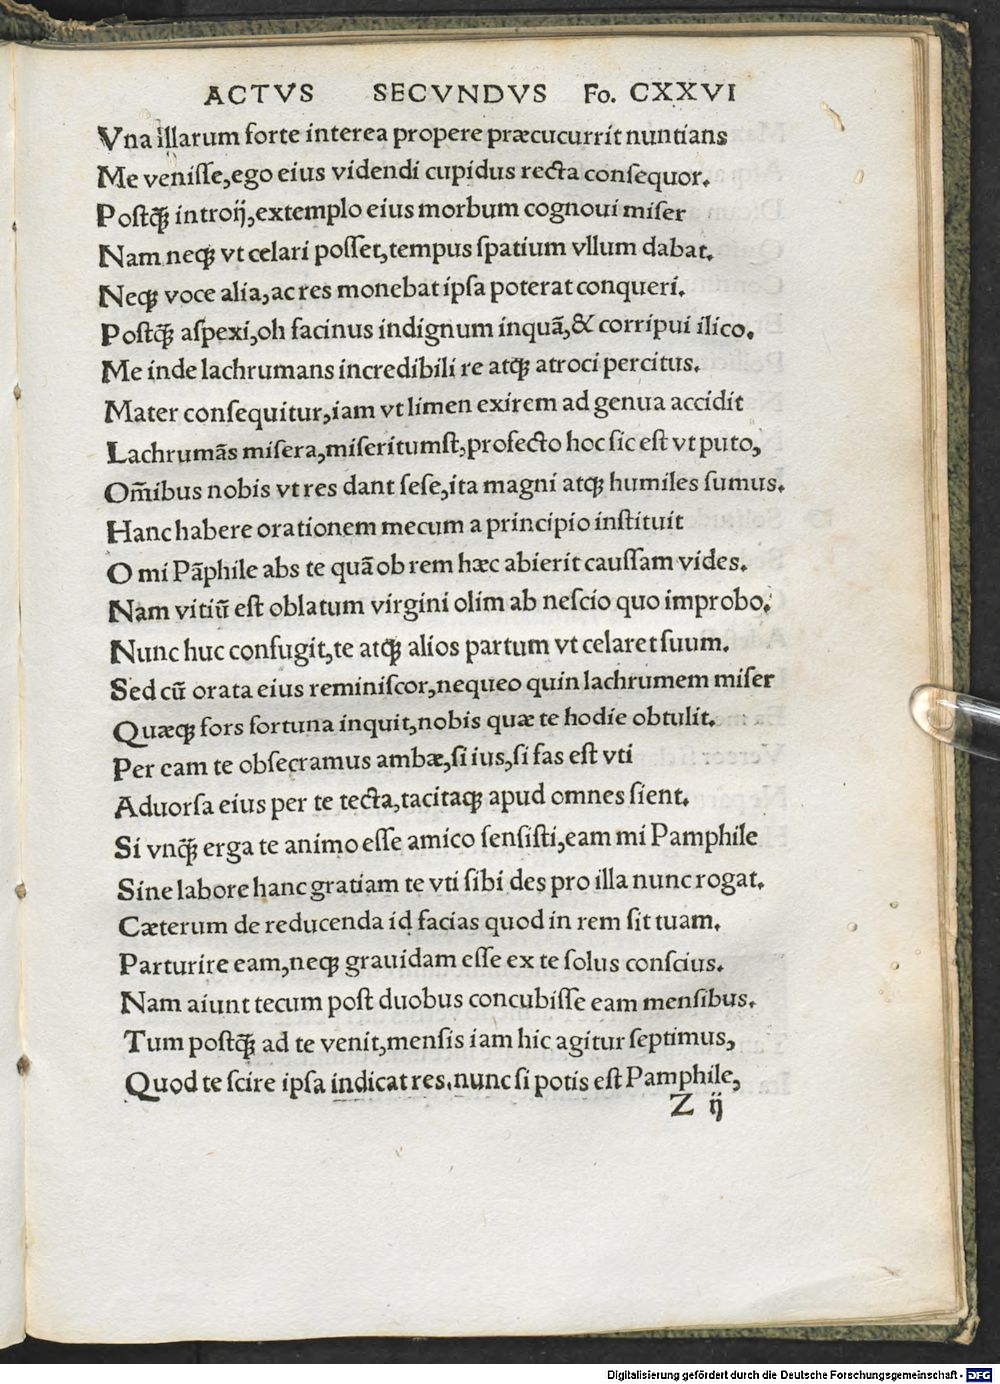 ACTVS SECVNDVS Fo. CXXVI
Vna illarum forte interea propere præcucurrit nuntians
Me veniſſe,ego eius videndi cupidus recta conſequor.
Poſtq̃ introij,extemplo eius morbum cognoui miſer
Nam neqꝫ vt celari poſſet,tempus ſpatium vllum dabat.
Neqꝫ voce alia,ac res monebat ipſa poterat conqueri.
Poſtq̃ aſpexi,oh facinus indignum inquã,& corripui ilico.
Me inde lachrumans incredibili re atqꝫ atroci percitus.
Mater conſequitur,iam vt limen exirem ad genua accidit
Lachrumãs miſera,miſeritumſt,profecto hoc ſic eſt vt puto,
Om̃ibus nobis vt res dant ſeſe,ita magni atqꝫ humiles ſumus.
Hanc habere orationem mecum a principio inſtituit
O mi Pãphile abs te quã ob rem hæc abierit cauſſam vides.
Nam vitiũ eſt oblatum virgini olim ab neſcio quo improbo.
Nunc huc confugit,te atqꝫ alios partum vt celaret ſuum.
Sed cũ orata eius reminiſcor,nequeo quin lachrumem miſer
Quæqꝫ fors fortuna inquit,nobis quæ te hodie obtulit.
Per eam te obſecramus ambæ,ſi ius,ſi fas eſt vti
Aduorſa eius per te tecta,tacitaqꝫ apud omnes ſient.
Si vnq̃ erga te animo eſſe amico ſenſiſti,eam mi Pamphile
Sine labore hanc gratiam te vti ſibi des pro illa nunc rogat.
Cæterum de reducenda id facias quod in rem ſit tuam.
Parturire eam,neqꝫ grauidam eſſe ex te ſolus conſcius.
Nam aiunt tecum poſt duobus concubiſſe eam menſibus.
Tum poſtq̃ ad te venit,menſis iam hic agitur ſeptimus,
Quod te ſcire ipſa indicat res.nunc ſi potis eſt Pamphile,
Z ij
Digitalisierung gefördert durch die Deutsche Forschungsgemeinschaft - DFG